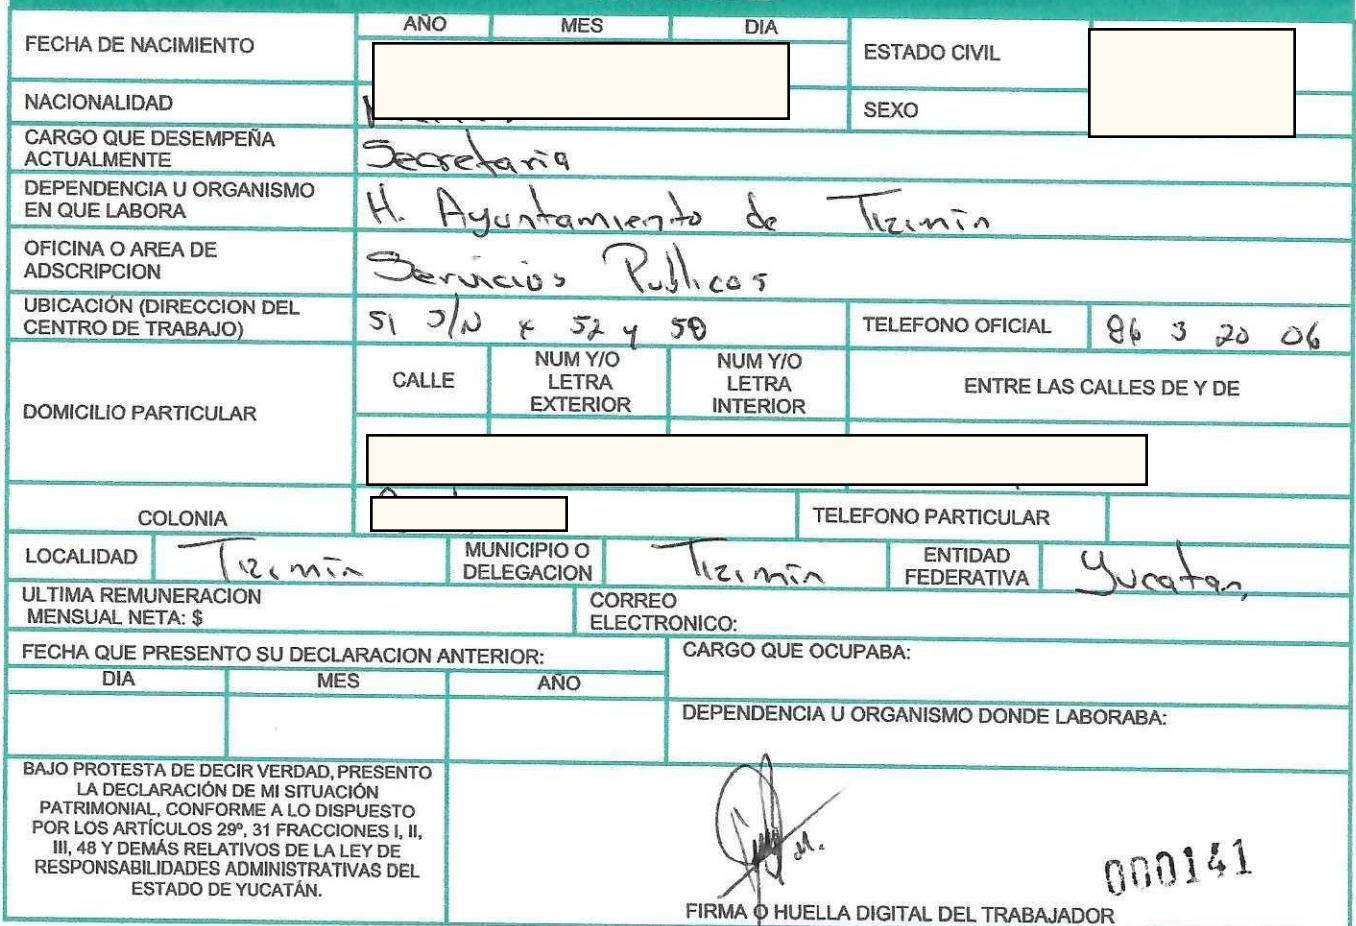 AÑO MES DIA
FECHA DE NACIMIENTO
ESTADO CIVIL
NACIONALIDAD
SEXO
CARGO QUE DESEMPEÑA
ACTUALMENTE
Secretaria
DEPENDENCIA U ORGANISMO
EN QUE LABORA
H. Ayuntamiento de Tizimín
OFICINA O AREA DE
ADSCRIPCION
Servicios Publicos
UBICACIÓN (DIRECCION DEL
CENTRO DE TRABAJO)
51 S/N x 52 y 50
TELEFONO OFICIAL
86 3 20 06
DOMICILIO PARTICULAR
CALLE
NUM Y/O
LETRA
EXTERIOR
NUM Y/O
LETRA
INTERIOR
ENTRE LAS CALLES DE Y DE
COLONIA
TELEFONO PARTICULAR
LOCALIDAD
Tizimín
MUNICIPIO O
DELEGACION
Tizimín
ENTIDAD
FEDERATIVA
Yucatan,
ULTIMA REMUNERACION
MENSUAL NETA: $
CORREO
ELECTRONICO:
FECHA QUE PRESENTO SU DECLARACION ANTERIOR:
DIA MES AÑO
CARGO QUE OCUPABA:
DEPENDENCIA U ORGANISMO DONDE LABORABA:
BAJO PROTESTA DE DECIR VERDAD, PRESENTO
LA DECLARACIÓN DE MI SITUACIÓN
PATRIMONIAL, CONFORME A LO DISPUESTO
POR LOS ARTÍCULOS 29º, 31 FRACCIONES I, II,
III, 48 Y DEMÁS RELATIVOS DE LA LEY DE
RESPONSABILIDADES ADMINISTRATIVAS DEL
ESTADO DE YUCATÁN.
000141
FIRMA O HUELLA DIGITAL DEL TRABAJADOR